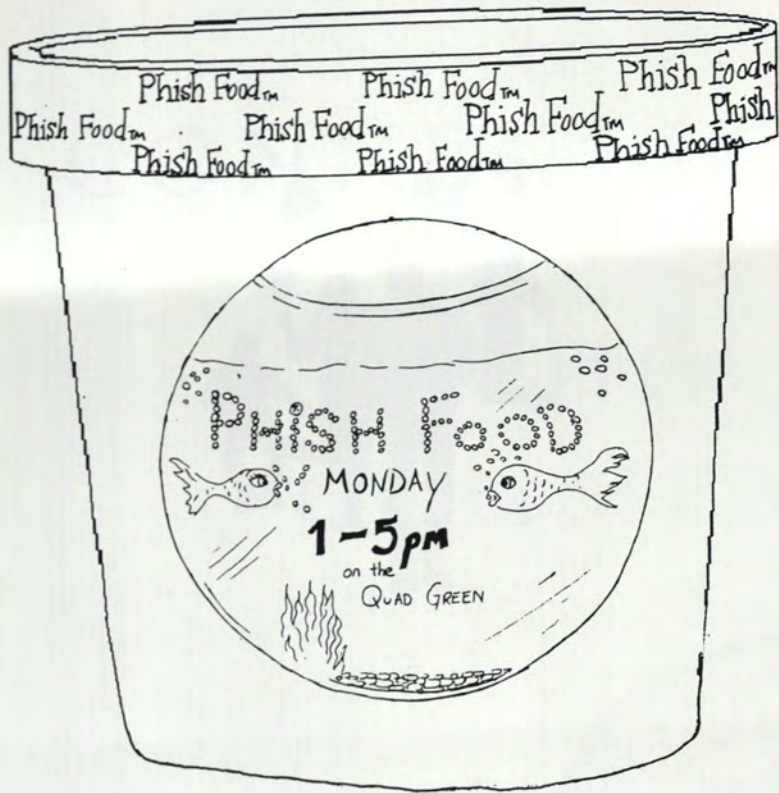 Phish Food™ Phish Food™ Phish Food™
Phish Food™ Phish Food™ Phish Food™ Phish
Phish Food™ Phish Food™ Phish Food™
PHISH FOOD
MONDAY
1-5pm
on the
QUAD GREEN